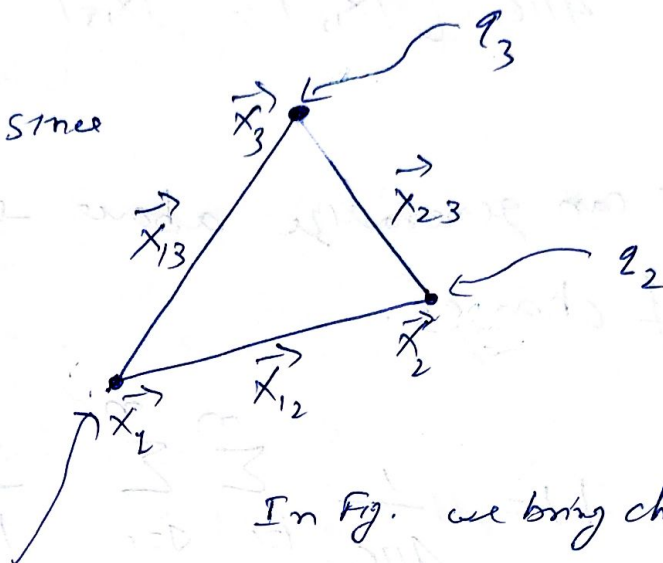 q₃
since
x⃗₃
x⃗₁₃
x⃗₂₃
q₂
x⃗₂
x⃗₁₂
x⃗₁
In Fig. we bring ch